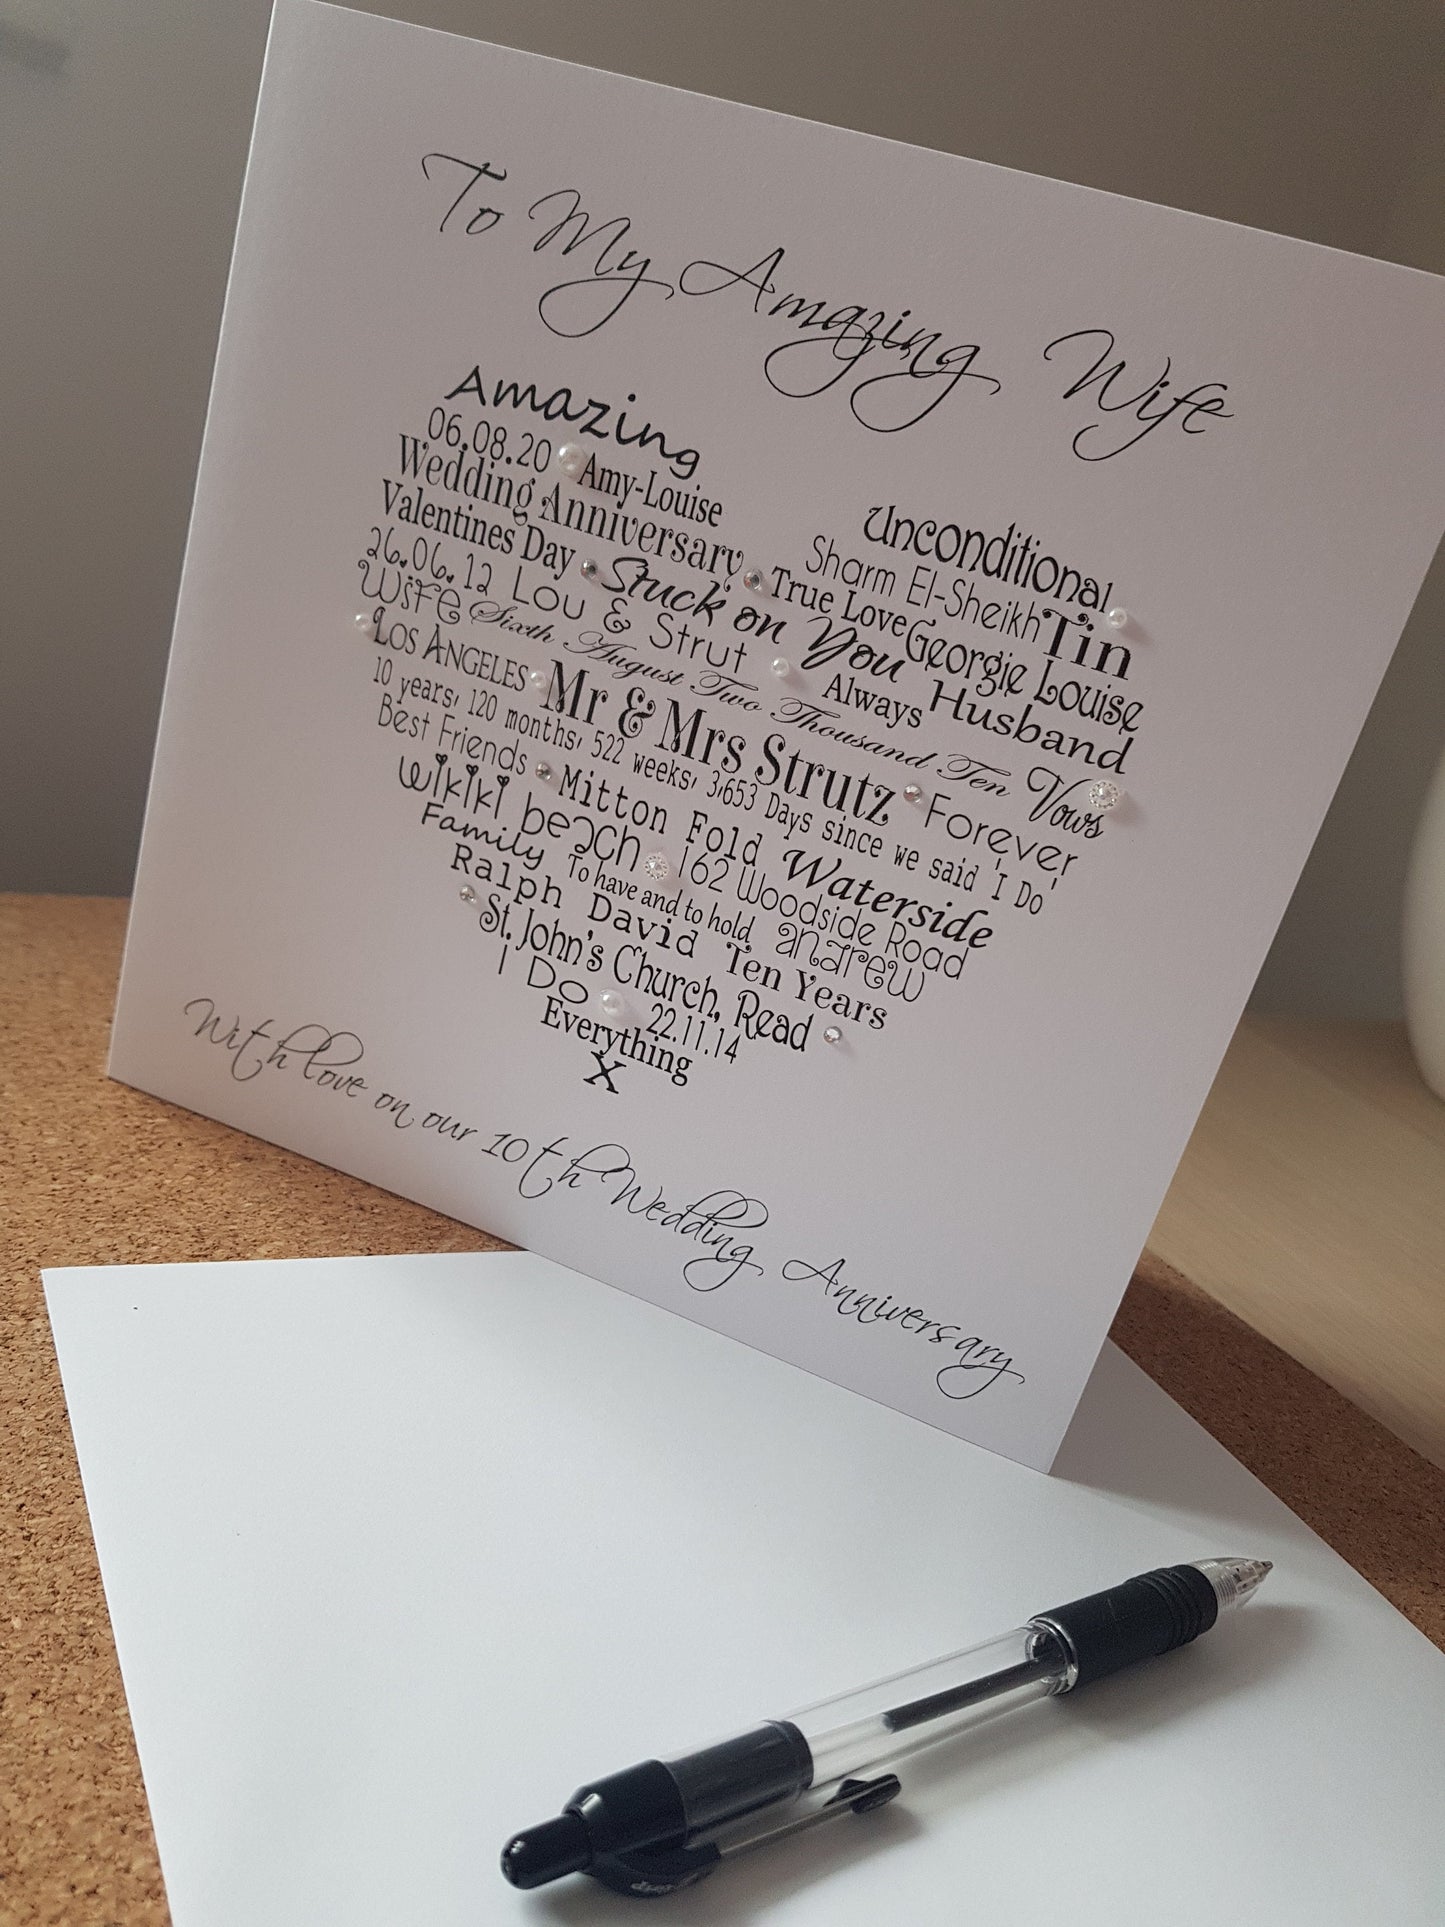 To My Amazing Wife
Amazing
06.08.20 Amy-Louise
Unconditional
Wedding Anniversary
Sharm El-Sheikh Tin
Valentines Day Stuck on You True Love Georgie Louise
26.06.12 Lou & Strut Always Husband
Wife Sixth August Two Thousand Ten Vows
Los Angeles Mr & Mrs Strutz Forever
10 years, 120 months, 522 weeks, 3,653 Days since we said 'I Do'
Best Friends Mitton Fold Waterside
Wikiki beach 162 Woodside Road
Family To have and to hold andrew
Ralph David Ten Years
St. John's Church, Read
I Do 22.11.14
Everything
X
With love on our 10th Wedding Anniversary